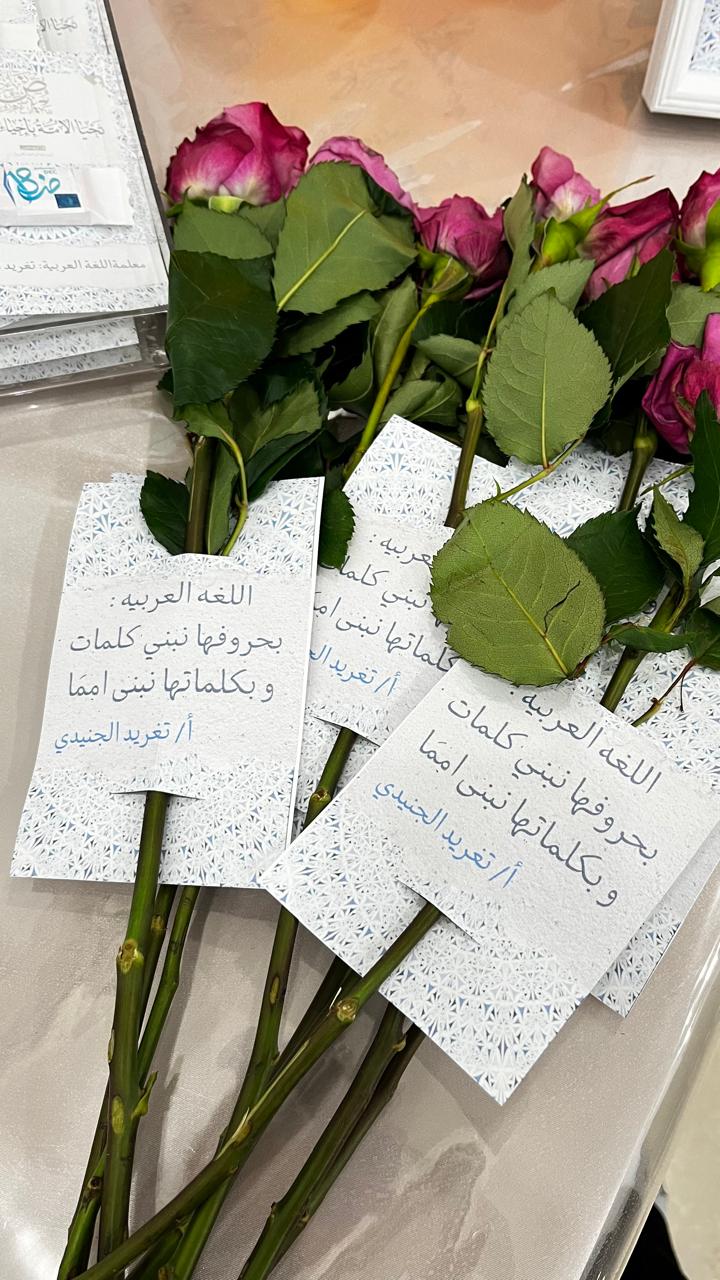 تحيا الأمة بأحياء
18 DEC
معلمة اللغة العربية: تغريد
اللغه العربيه :
بحروفها نبني كلمات
و بكلماتها نبنى اممَا
أ/ تغريد الجنيدي
العربيه :
نبني كلمات
نبنى اممَا
أ/ تغريد
اللغه العربيه :
بحروفها نبني كلمات
و بكلماتها نبنى اممَا
أ/ تغريد الجنيدي